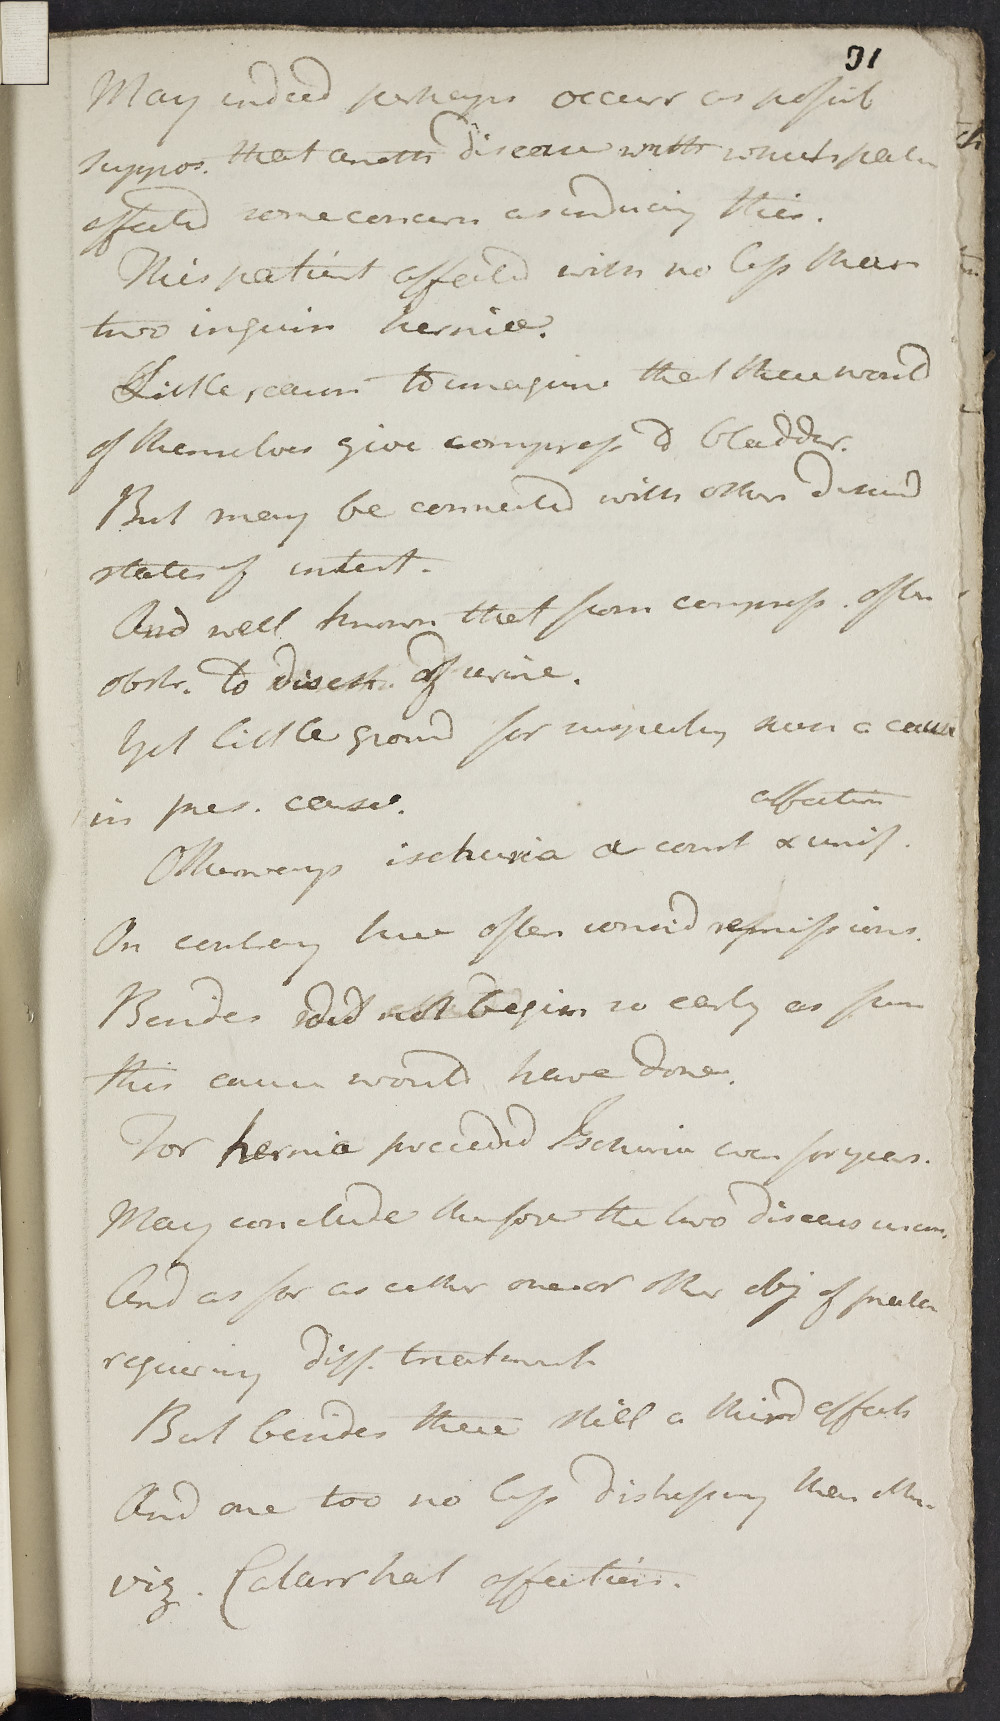 31
May indeed perhaps occurr as possib
suppos. that anoth disease with which patn
affected some concern as inducing this.
This patient affected with no less than
two inguin herniæ.
Little, seems to imagine that these would
of themselves give compress to bladder.
But may be connected with other diseased
states of intest.
And well known that from compress. often
obstr. to disch. of urine.
Yet little ground for suspecting such a cause
in pres. case.
affection
Otherways ischuria a const & unif.
On contrary here often consid remissions.
Besides did not begin so early as from
this cause would have done.
For hernia preceded Ischuria even for years.
May conclude therefore the two diseases
And as far as either one or other obj of pract
requiring diff. treatment
But besides these still a third affects
And one too no less distressing than other
viz. Catarrhal affection.